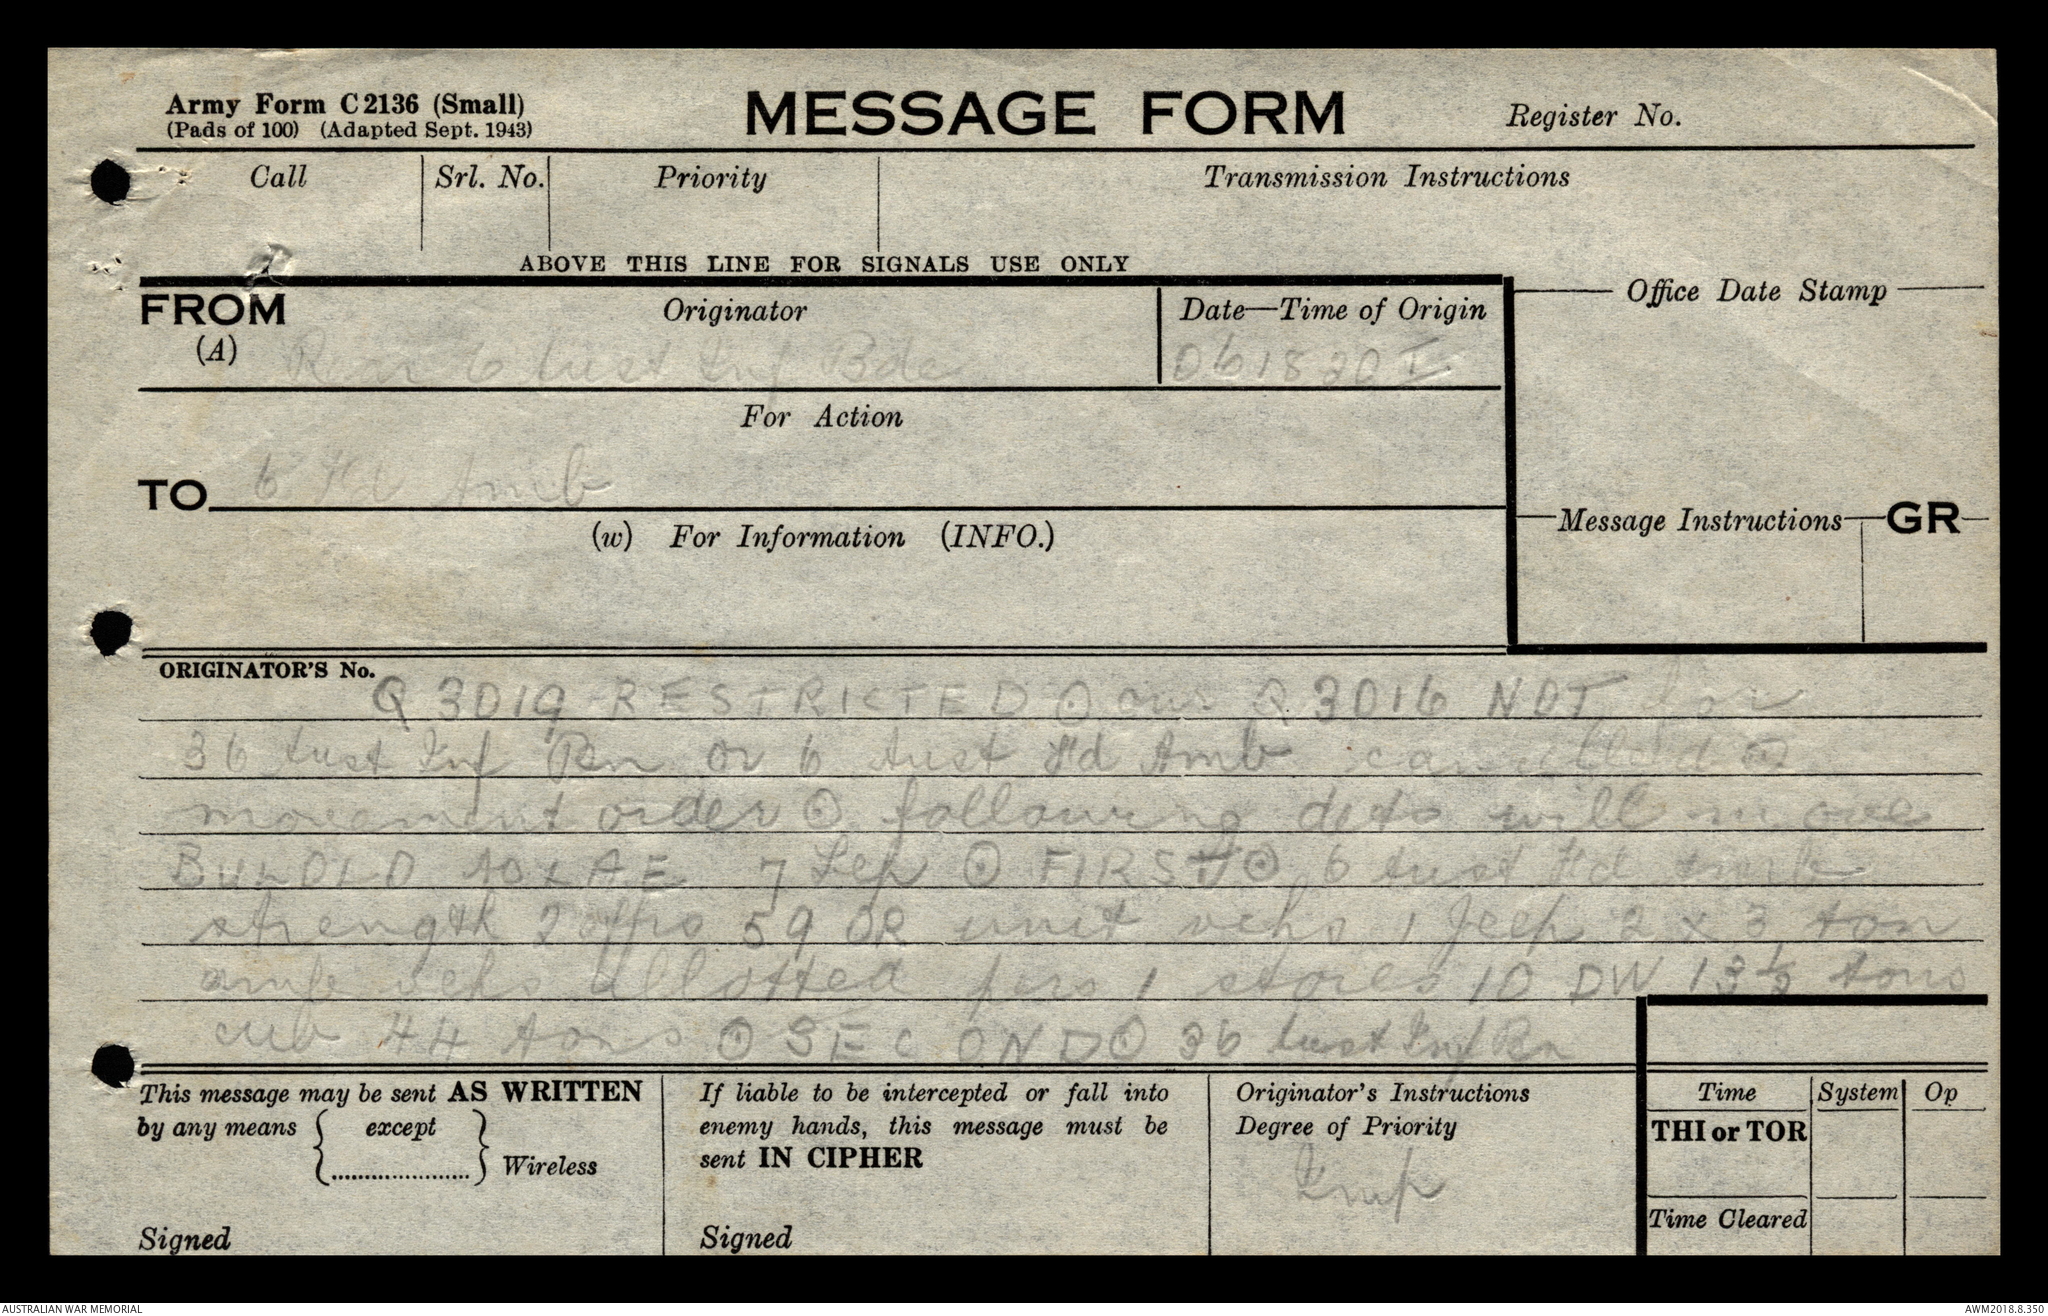 Army Form C2136 (Small)
(Pads of 100) (Adapted Sept. 1943)
MESSAGE FORM
Register No.
Call
Srl. No.
Priority
Transmission Instructions
ABOVE THIS LINE FOR SIGNALS USE ONLY
FROM
(A)
Originator
Rear 6 Aust Inf Bde
Date—Time of Origin
061820 I
Office Date Stamp
For Action
TO
6 Fd Amb
(w) For Information (INFO.)
Message Instructions
GR
ORIGINATOR'S No.
Q 3019 RESTRICTED ⊙ our Q 3016 NOT for
36 Aust Inf Bn or 6 Aust Fd Amb cancelled ⊙
movement order ⊙ following dets will move
7 Sep ⊙ FIRST ⊙ 6 Aust Fd Amb
strength 2 offrs 59 OR unit vehs 1 Jeep 2 x 3 ton
amb vehs allotted pers 1 stores 10 DW 13½ tons
cub 44 tons ⊙ SECOND ⊙ 36 Aust Inf Bn
This message may be sent AS WRITTEN
by any means { except ...................... } Wireless
Signed
If liable to be intercepted or fall into
enemy hands, this message must be
sent IN CIPHER
Signed
Originator's Instructions
Degree of Priority
Imp
Time
System
Op
THI or TOR
Time Cleared
AUSTRALIAN WAR MEMORIAL
AWM2018.8.350